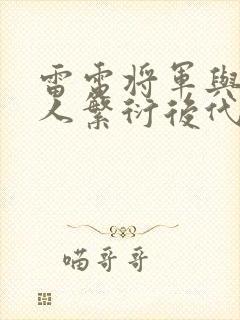 雷雷将軍與
人繁衍後代
喵哥哥